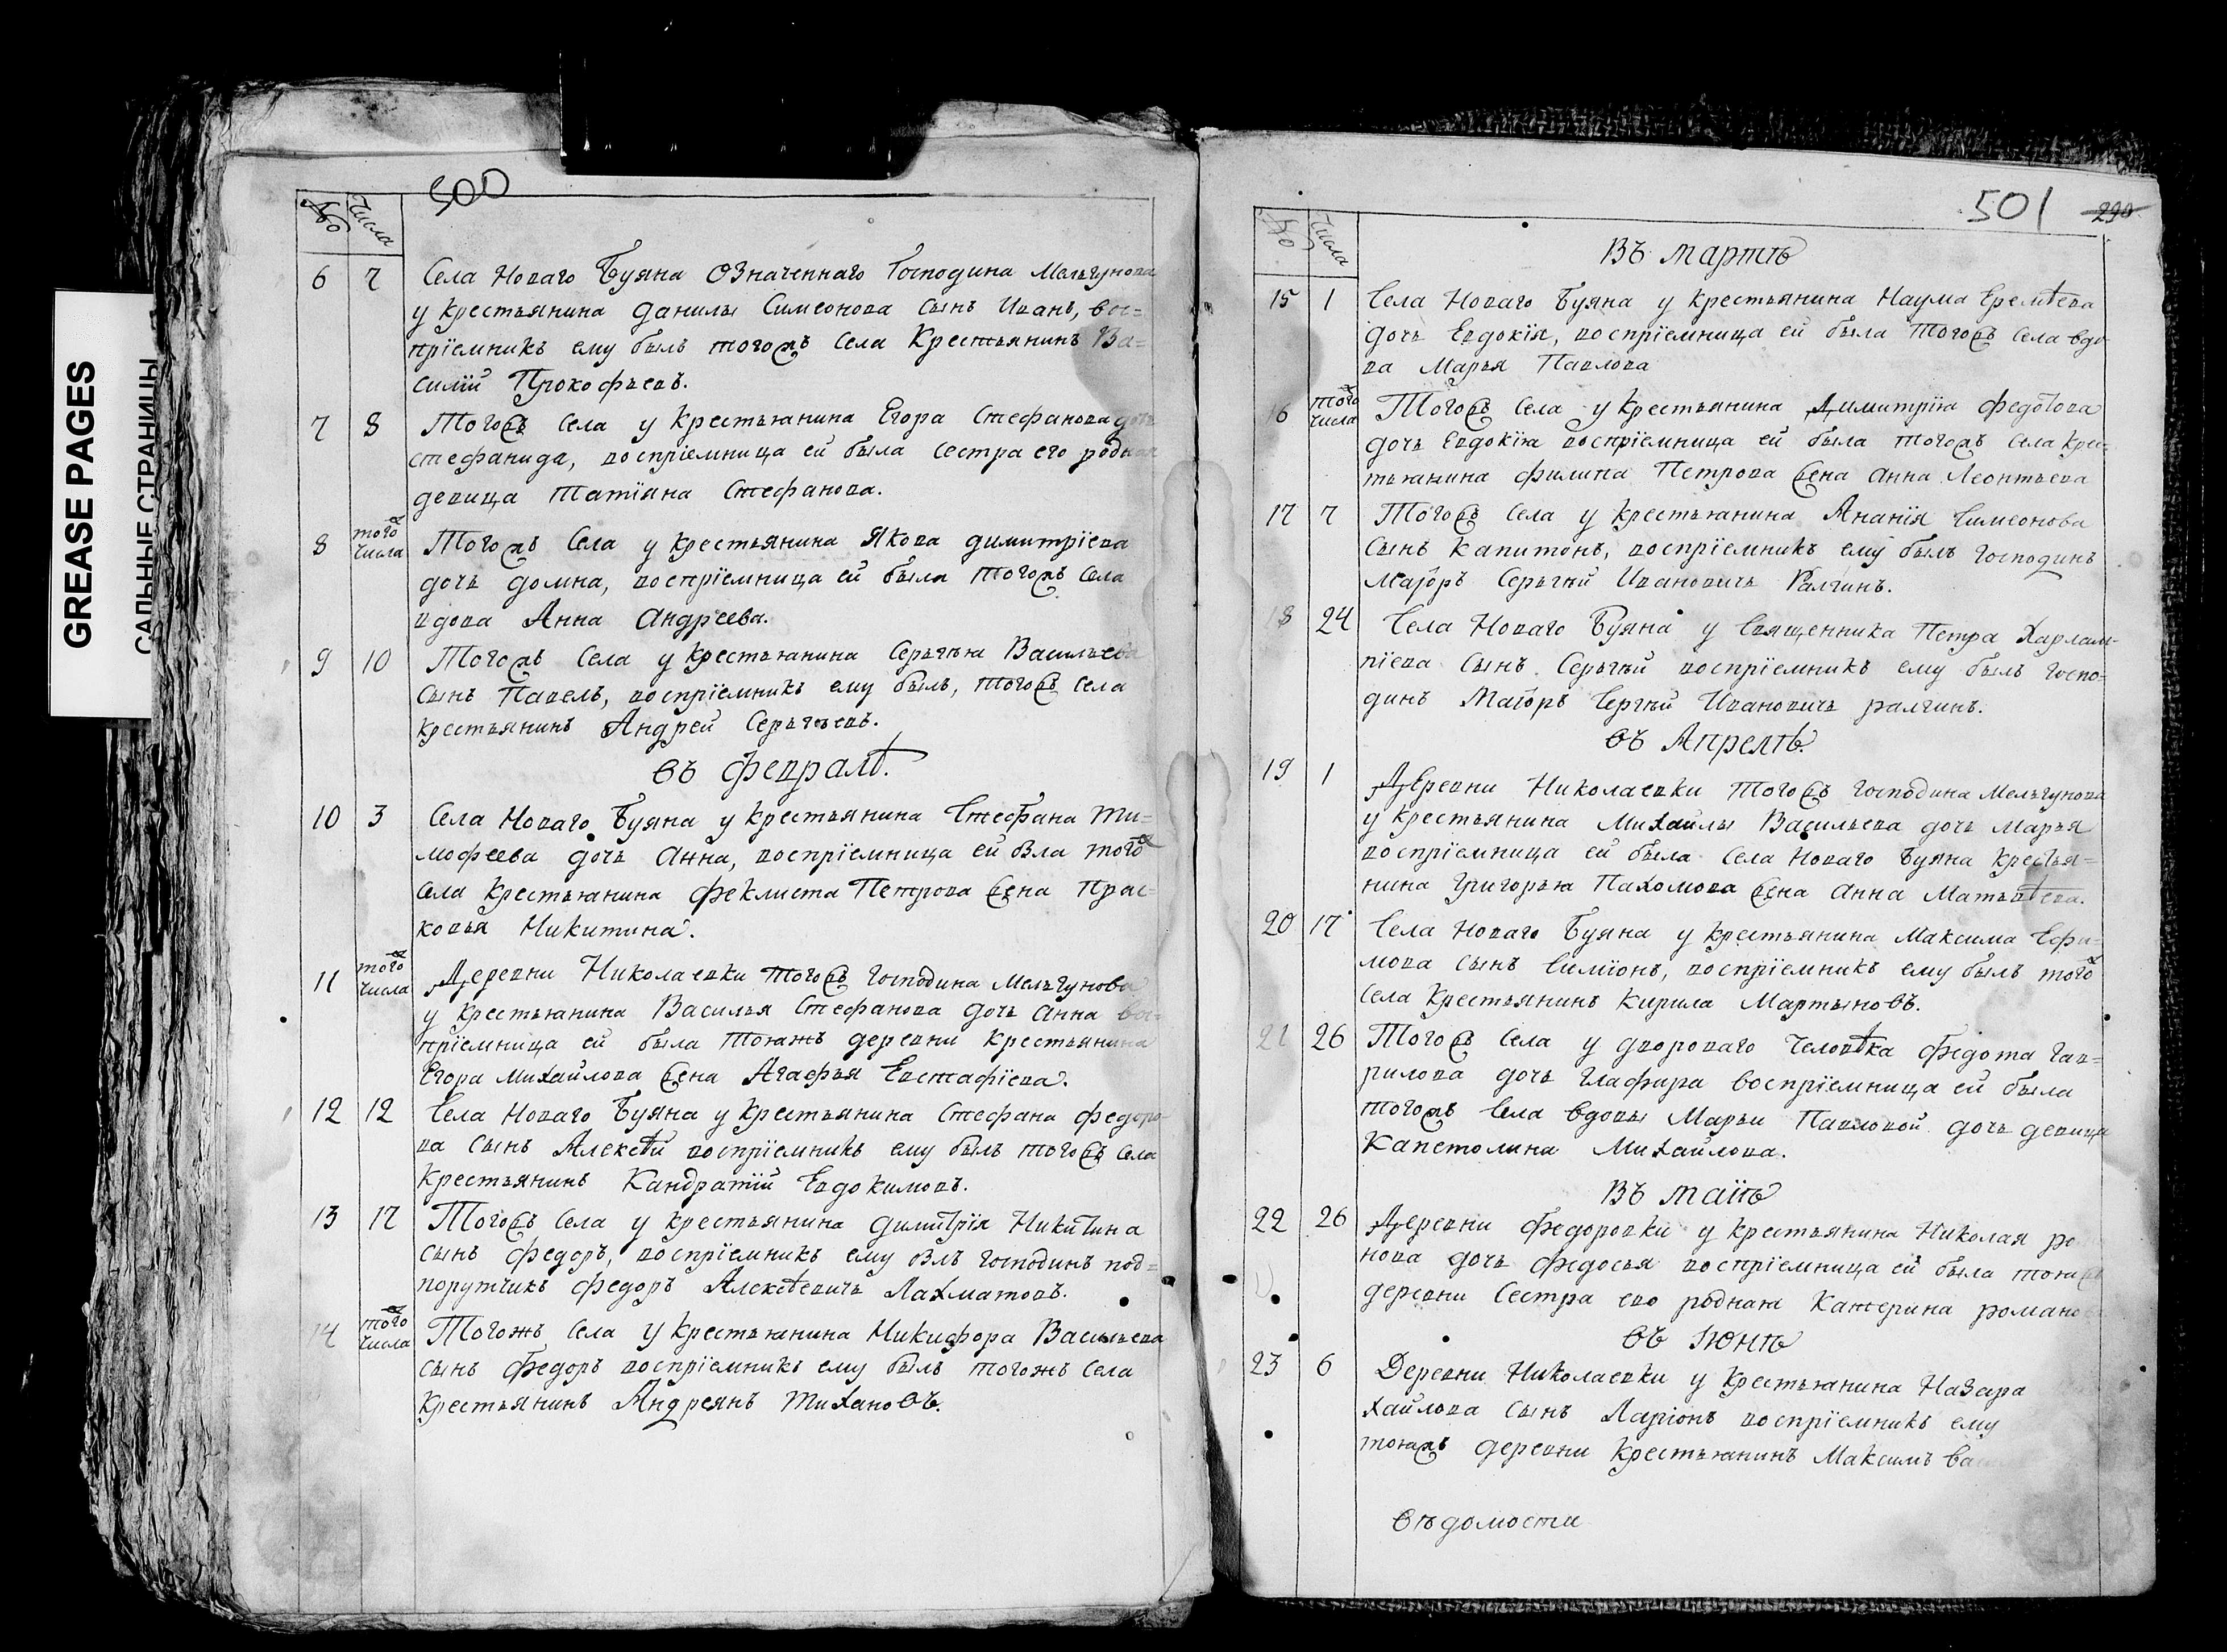 GREASE PAGES
САЛЬНЫЕ СТРАНИЦЫ
500
№
Числа
6 7 Села Новаго Буяна означеннаго Господина Мельгунова
у крестьянина данилы Симеонова сынъ Иванъ, вос=
прїемникъ ему былъ тогожъ села Крестьянинъ Ва=
силїй Прокофьевъ.
7 8 Тогожъ села у крестьянина Егора Стефанова дочь
стефанида, воспрїемница ей была сестра его родная
девица Татїяна Стефанова.
8 того числа Тогожъ Села у крестьянина Якова димитрїева
дочь домна, воспрїемница ей была тогожъ села
вдова Анна Андреева.
9 10 Тогожъ Села у крестьянина Серьгѣя Васильева
сынъ Павелъ, воспрїемникъ ему былъ, тогожъ села
крестьянинъ Андрей Серьгѣевъ.
въ февралѣ.
10 3 Села Новаго Буяна у крестьянина Стефана Ти=
мофеева дочь Анна, воспрїемница ей бла тогож
села крестьянина феклиста Петрова жена Прас=
ковья Никитина.
11 того числа Деревни Николаевки тогожъ господина Мельгунова
у крестьянина Василья Стефанова дочь Анна вос=
прїемница ей была тояжъ деревни крестьянина
Егора Михайлова жена Агафья Евстафїева.
12 12 Села Новаго Буяна у крестьянина Стефана федоро=
ва сынъ Алексѣй воспрїемникъ ему былъ тогожъ села
крестьянинъ Кандратїй Евдокимовъ.
13 17 Тогожъ села у крестьянина димитрїя Никитина
сынъ федоръ, воспрїемникъ ему блъ господинъ под=
порутчикъ федоръ Алексѣевичъ Лахматовъ.
14 того числа Тогожъ села у крестьянина Никифора Васильева
сынъ федоръ воспрїемникъ ему былъ тогожъ села
крестьянинъ Андреянъ Тихановъ.
501 290
№
Числа
Въ мартѣ
15 1 Села Новаго Буяна у крестьянина Наума Еремѣева
дочь Евдокїя, воспрїемница ей была тогожъ села вдо
ва Марья Павлова
16 того числа Тогожъ села у крестьянина Димитрїя федотова
дочь Евдокїя воспрїемница ей была тогожъ села крес=
тьянина филипа Петрова жена Анна Леонтьева
17 7 Тогожъ села у крестьянина Ананїя Симеонова
сынъ Капитонъ, воспрїемникъ ему былъ господинъ
маїоръ Серьгѣй Ивановичъ Ралгинъ.
18 24 Села Новаго Буяна у священника Петра Харлам=
пїева сынъ Серьгѣй воспрїемникъ ему былъ госпо=
динъ Маїоръ Сергѣй Ивановичъ ралгинъ.
въ Апрелѣ.
19 1 Деревни Николаевки тогожъ господина Мельгунова
у крестьянина Михайлы Васильева дочь Марья
воспрїемница ей была села Новаго Буяна крестья=
нина Григорья Пахомова жена Анна Матьвѣева.
20 17 Села Новаго Буяна у крестьянина Максима Ефи=
мова сынъ Симїонъ, воспрїемникъ ему былъ тогож
села крестьянинъ Кирила Мартыновъ.
21 26 Тогожъ села у двороваго человѣка федота Гав=
рилова дочь Глафира воспрїемница ей была
тогожъ села вдовы Марьи Павловой дочь девица
Капетолина Михайлова.
Въ маїѣ
22 26 Деревни федоровки у крестьянина Николая ро
нова дочь федосья воспрїемница ей была тояжъ
деревни сестра ево родная Катерина романо
въ Іюнѣ
23 6 Деревни Николаевки у крестьянина Назара
хайлова сынъ Ларїонъ воспрїемникъ ему
тояжъ деревни крестьянинъ Максимъ Ва
вѣдомости